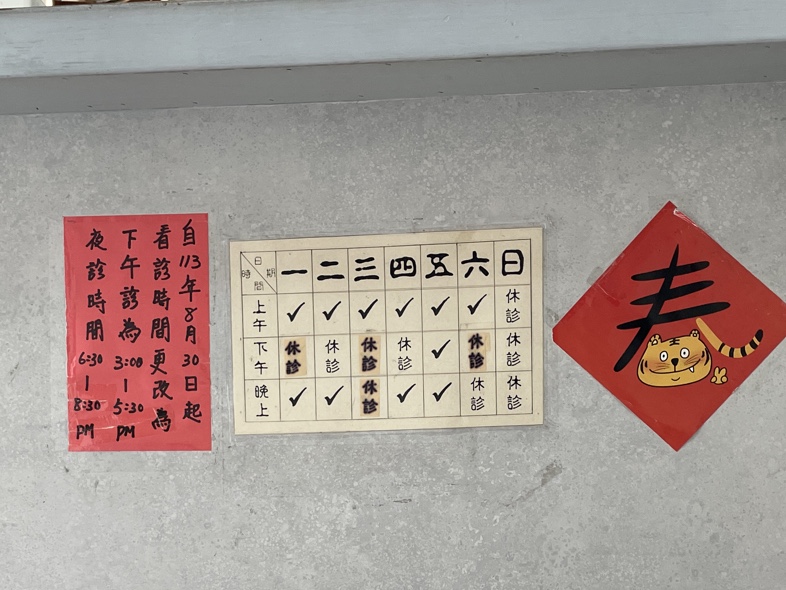 自113年8月30日起
看診時間更改為
下午診為 3:00-5:30 PM
夜診時間 6:30-8:30 PM
日期 時間 一 二 三 四 五 六 日
上午 ✓ ✓ ✓ ✓ ✓ ✓ 休診
下午 休診 休診 休診 休診 ✓ 休診 休診
晚上 ✓ ✓ 休診 ✓ ✓ 休診 休診